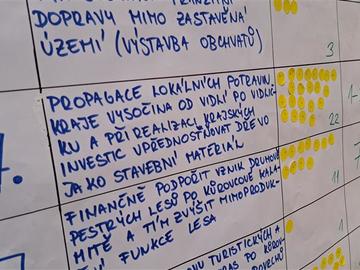 DOPRAVY MIMO ZASTAVĚNÁ
ÚZEMÍ (VÝSTAVBA OBCHVATŮ)
3
PROPAGACE LOKÁLNÍCH POTRAVIN
KRAJE VYSOČINA OD VIDLÍ PO VIDLIČ-
KU A PŘI REALIZACI KRAJSKÝCH
INVESTIC UPŘEDNOSTŇOVAT DŘEVO
JAKO STAVEBNÍ MATERIÁL
22
FINANČNĚ PODPOŘIT VZNIK DRUHOVĚ
PESTRÝCH LESŮ PO KŮROVCOVÉ KALA-
MITĚ A TÍM ZVÝŠIT MIMOPRODUK-
ČNÍ FUNKCE LESA
11
TURISTICKÝCH A
PO KŮROV-
POVRCHŮ
1